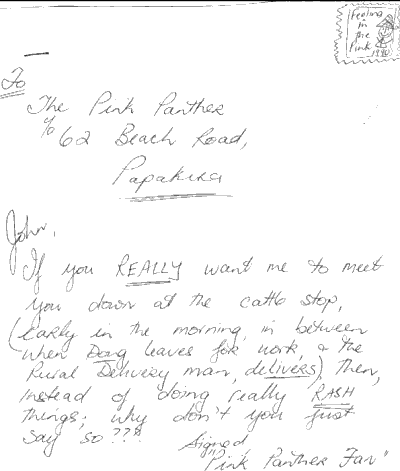 Feeling
in
the
Pink
To
The Pink Panther
c/o 62 Beach Road,
Papakura
John,
If you REALLY want me to meet
you down at the cattle stop,
(early in the morning, in between
when Doug leaves for work, & the
Rural Delivery man, delivers), then,
instead of doing really RASH
things; why don't you just
say so???
Signed
"Pink Panther Fan"